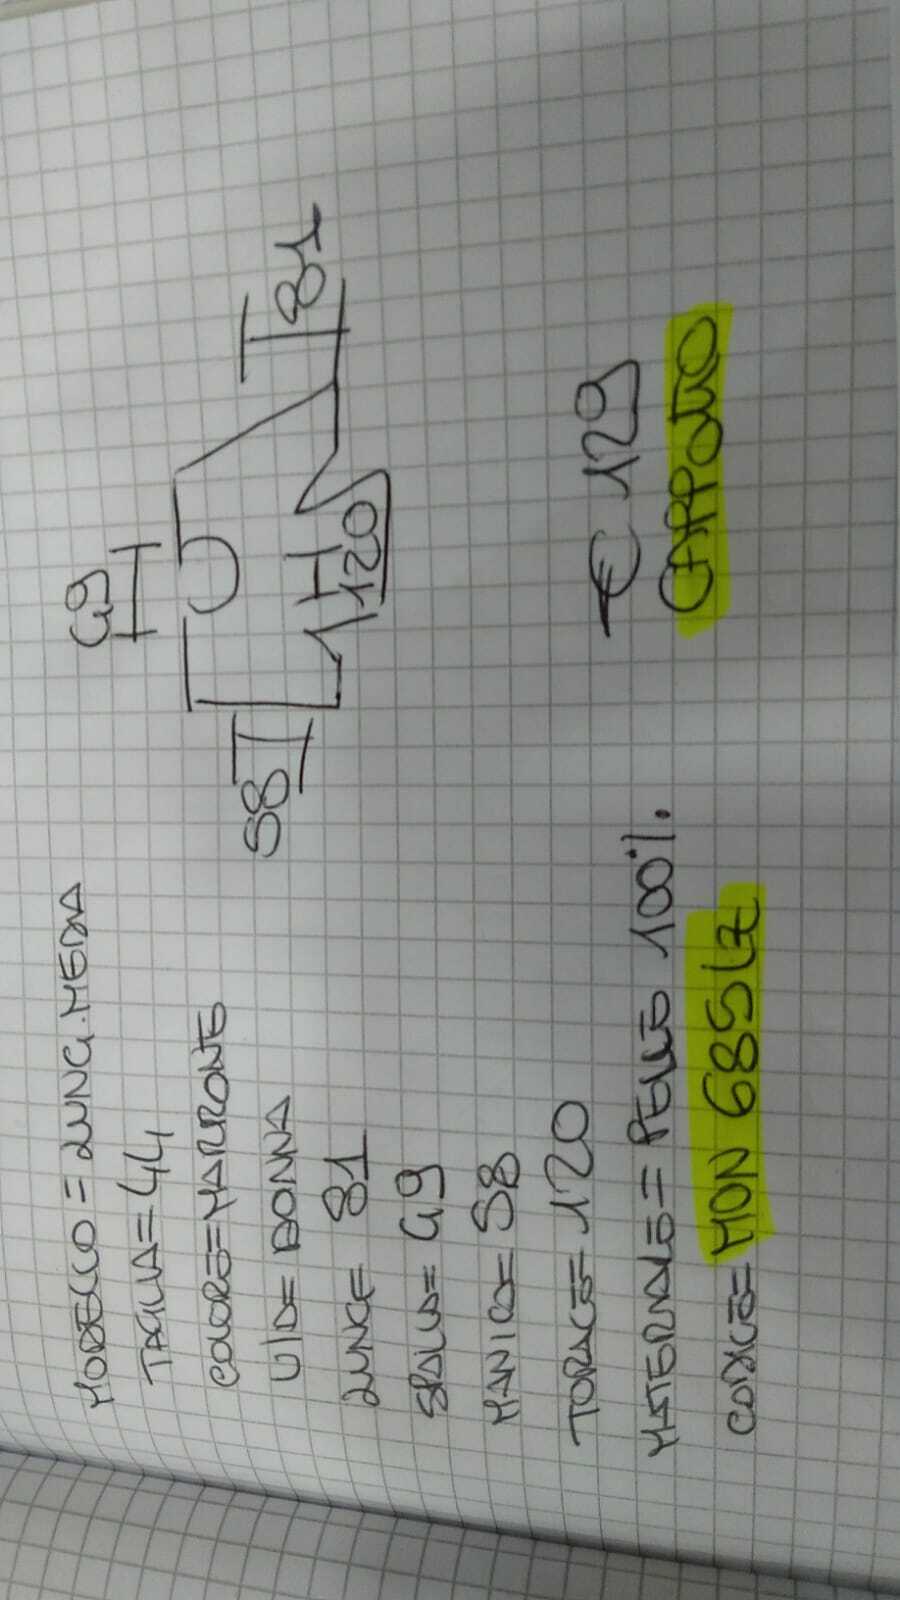 MODELLO = LUNG. MEDIA
TAGLIA = 44
COLORE = MARRONE
U/D = DONNA
LUNG = 81
SPALLA = 49
MANICA = 58
TORACE = 120
MATERIALE = PELLE 100%
CODICE =
49
58
120
81
€ 129
CAPPOTTO